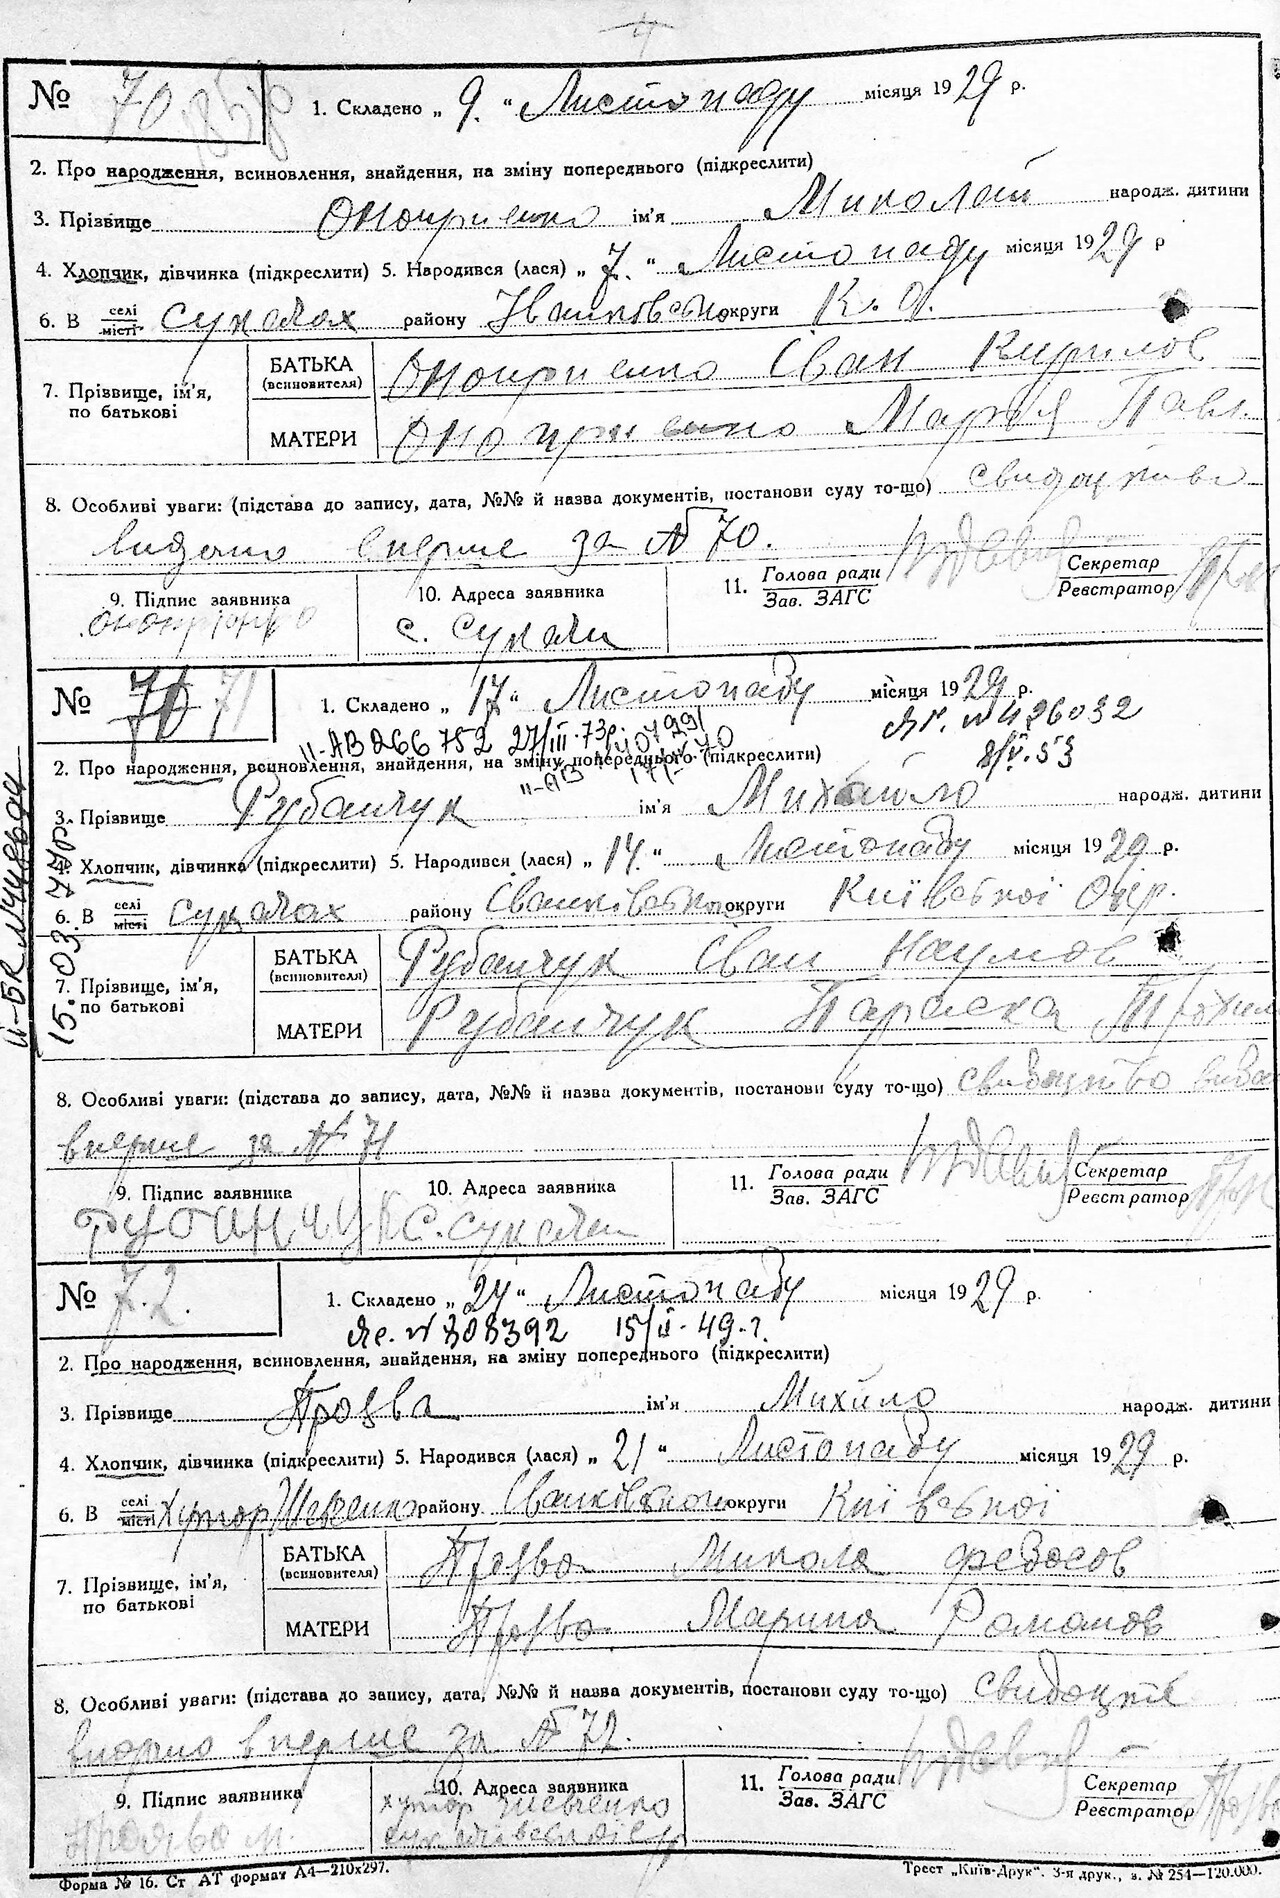 4
№ 70 1. Складено „ 9. “ Листопаду місяця 1929 р.
2. Про народження, всиновлення, знайдення, на зміну попереднього (підкреслити)
3. Прізвище Оноприенко ім'я Миколай народж. дитини
4. Хлопчик, дівчинка (підкреслити) 5. Народився (лася) „ 7. “ Листопаду місяця 1929 р
6. В селі місті Сукачах району Іванковсько округи К. О.
7. Прізвище, ім'я, по батькові
БАТЬКА (всиновителя) Оноприенко Іван Кирилов
МАТЕРИ Оноприенко Марія Павл
8. Особливі уваги: (підстава до запису, дата, №№ й назва документів, постанови суду то-що) свидоцтво
видано вперше за № 70.
9. Підпис заявника 10. Адреса заявника 11. Голова ради Зав. ЗАГС Секретар Реєстратор
Оноприенко с. Сукачи
№ 70 71 1. Складено „ 17 “ Листопаду місяця 1929 р.
II-АВ 266752 27/III-73р. ЯР. № 426032
8/V. 53
2. Про народження, всиновлення, знайдення, на зміну попереднього (підкреслити)
II-АВ
3. Прізвище Рубанчук ім'я Михайло народж. дитини
4. Хлопчик, дівчинка (підкреслити) 5. Народився (лася) „ 14. “ Листопаду місяця 1929 р.
6. В селі місті Сукачах району Іванківського округи Київської Окр.
7. Прізвище, ім'я, по батькові
БАТЬКА (всиновителя) Рубанчук Іван Наумов
МАТЕРИ Рубанчук Параска
8. Особливі уваги: (підстава до запису, дата, №№ й назва документів, постанови суду то-що) свидоцтво вида
вперше за № 71
9. Підпис заявника 10. Адреса заявника 11. Голова ради Зав. ЗАГС Секретар Реєстратор
Рубанчук с. Сукачи
15.03.77р.
№ 72. 1. Складено „ 24 “ Листопаду місяця 1929 р.
Яс. № 308392 15/II-49.г.
2. Про народження, всиновлення, знайдення, на зміну попереднього (підкреслити)
3. Прізвище Прозва ім'я Михайло народж. дитини
4. Хлопчик, дівчинка (підкреслити) 5. Народився (лася) „ 21 “ Листопаду місяця 1929 р.
6. В селі місті Хутор Шевченко району Іванківського округи Київської
7. Прізвище, ім'я, по батькові
БАТЬКА (всиновителя) Микола Федосов
МАТЕРИ Марина Романов
8. Особливі уваги: (підстава до запису, дата, №№ й назва документів, постанови суду то-що) свидоцтв
видано вперше за № 72.
9. Підпис заявника 10. Адреса заявника 11. Голова ради Зав. ЗАГС Секретар Реєстратор
хутор Шевченко
Форма № 16. Ст АТ формат А4—210х297. Трест „Київ-Друк“. 3-я друк., з. № 254—120.000.